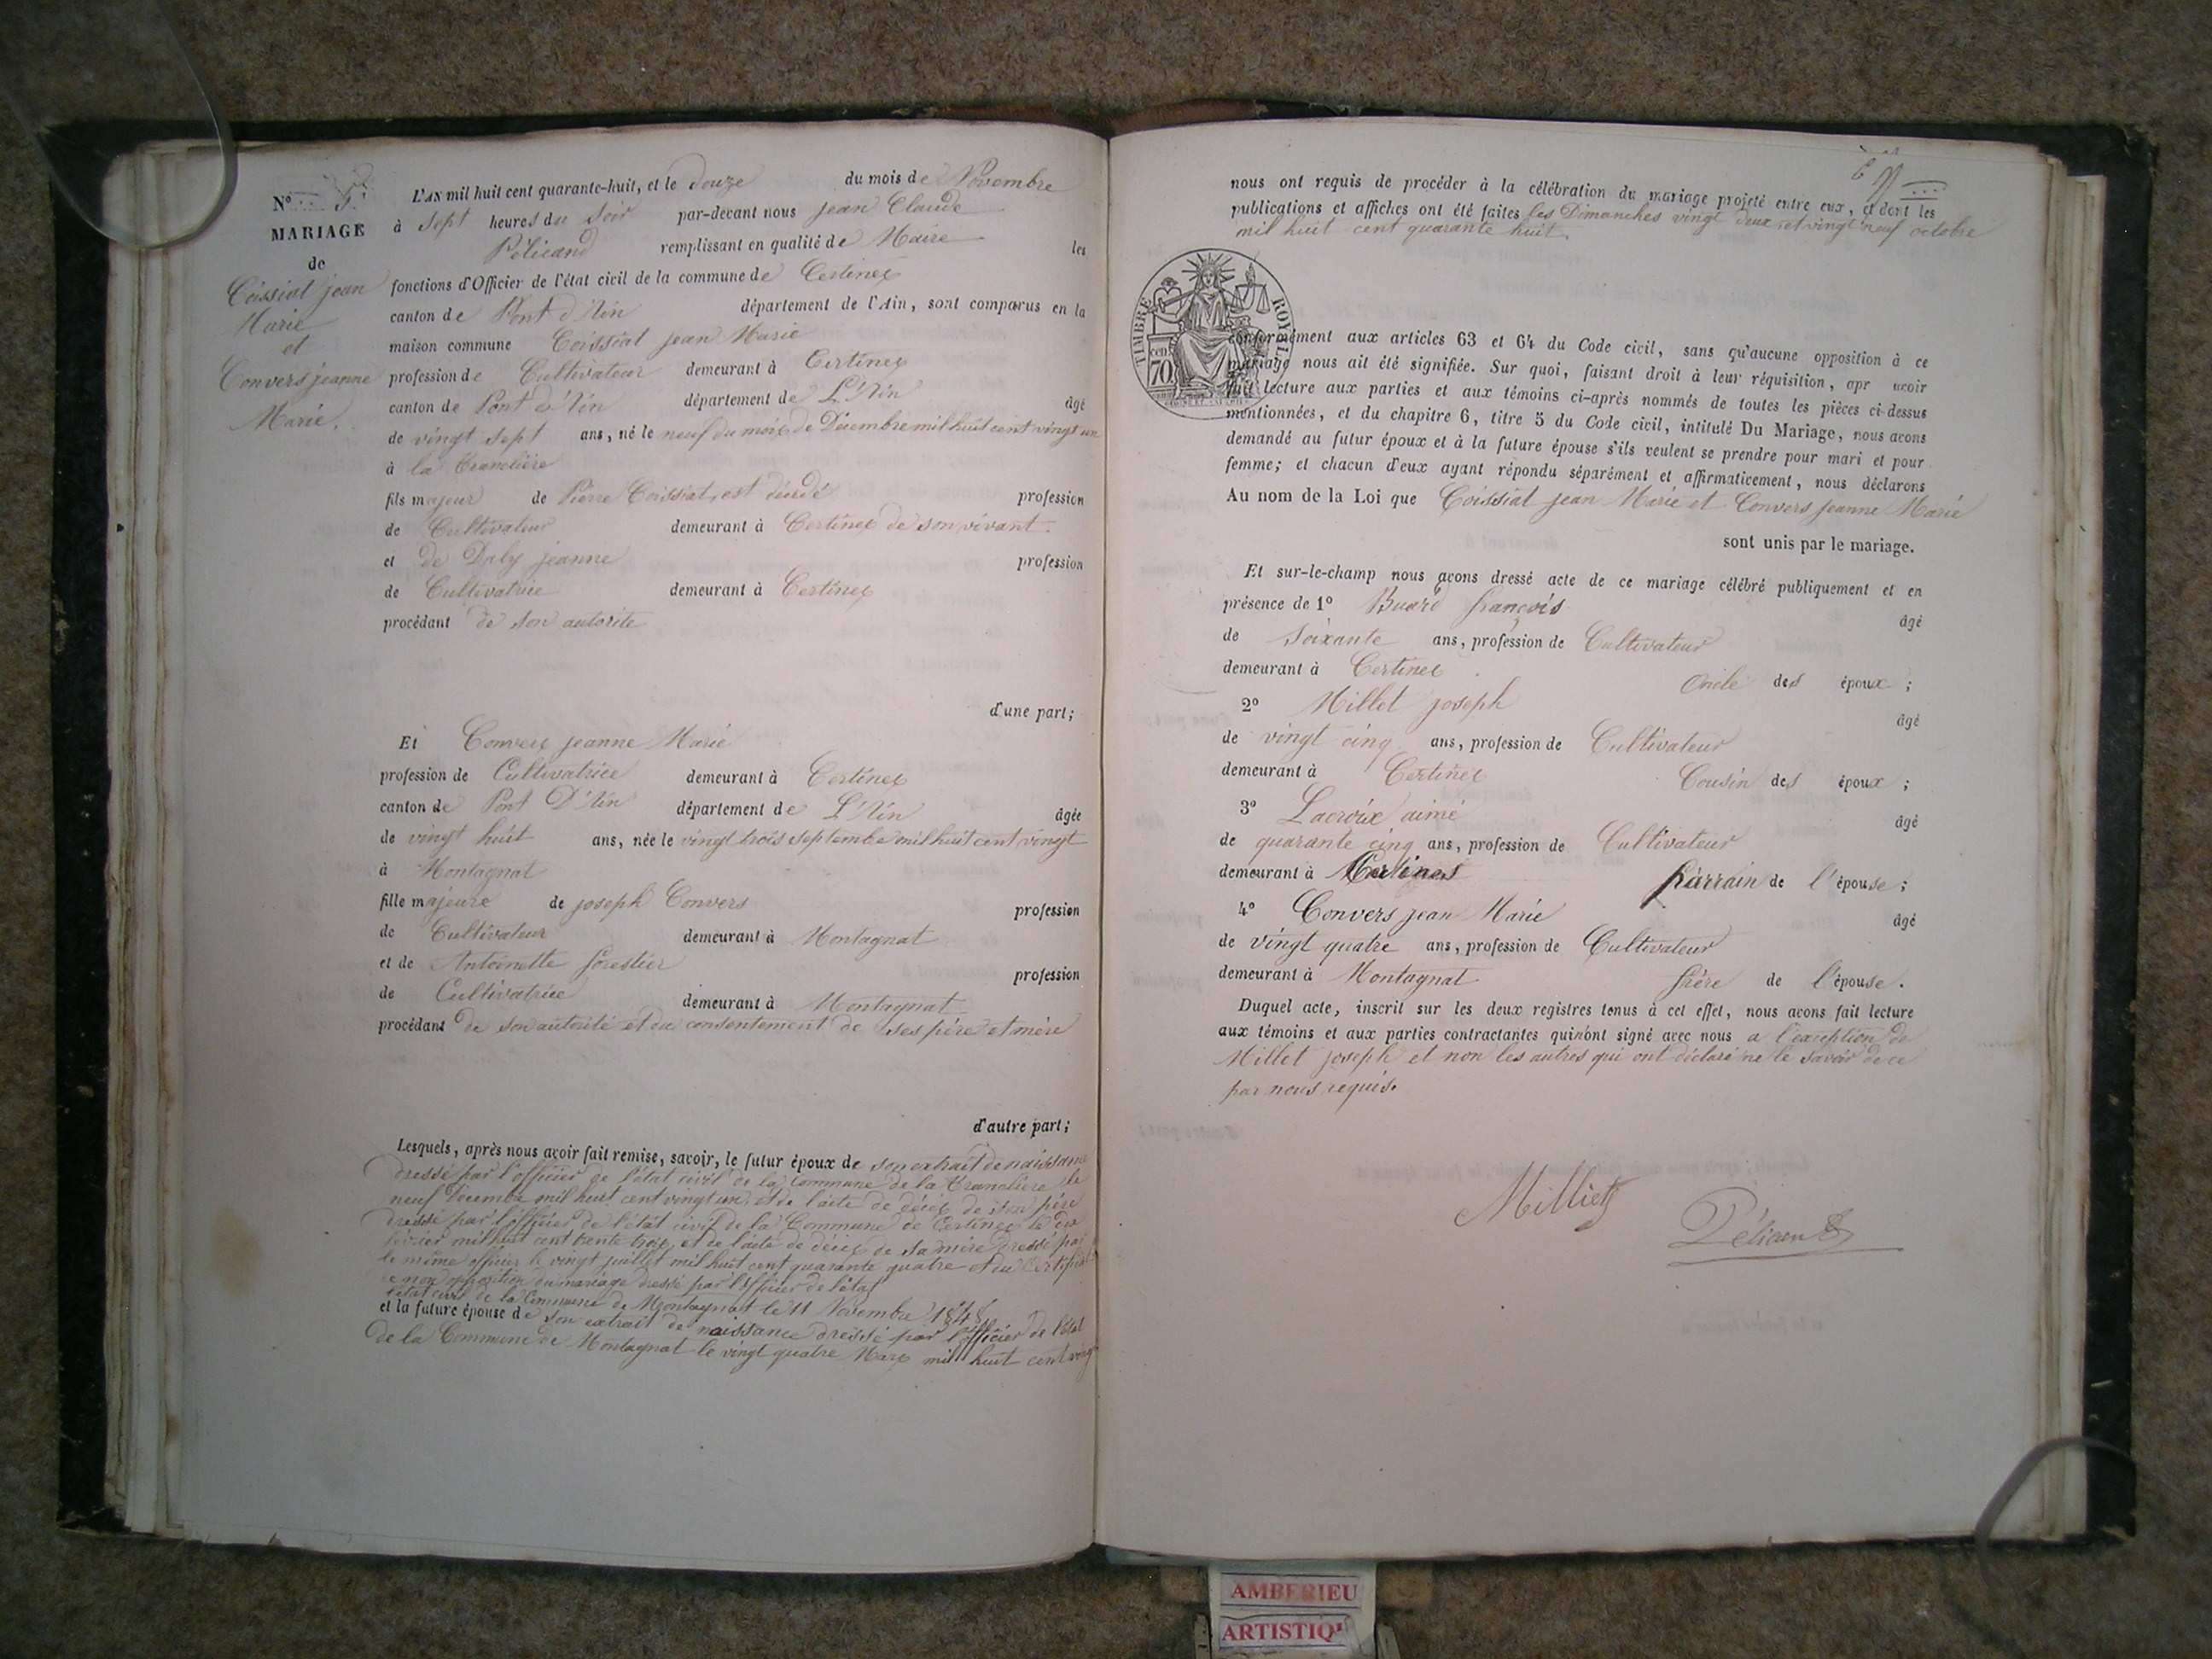 Nº 5
MARIAGE
de
Coissiat jean
Marie
et
Convers jeanne
Marie.
L'AN mil huit cent quarante-huit, et le douze du mois de Novembre
à sept heures du soir par-devant nous jean Claude
Pélicand remplissant en qualité de Maire les
fonctions d'Officier de l'état civil de la commune de Certines
canton de Pont d'Ain département de l'Ain, sont comparus en la
maison commune Coissiat jean Marie
profession de Cultivateur demeurant à Certines
canton de Pont d'Ain département de L'Ain âgé
de vingt sept ans, né le neuf du mois de Décembre mil huit cent vingt un
à la Tranclière
fils majeur de Pierre Coissiat, est décédé profession
de Cultivateur demeurant à Certines de son vivant.
et de Daly jeanne profession
de Cultivatrice demeurant à Certines
procédant de son autorité
d'une part;
Et Convers jeanne Marie
profession de Cultivatrice demeurant à Certines
canton de Pont D'Ain département de L'Ain âgée
de vingt huit ans, née le vingt trois septembre mil huit cent vingt
à Montagnat
fille majeure de joseph Convers profession
de Cultivateur demeurant à Montagnat
et de Antoinette forestier profession
de Cultivatrice demeurant à Montagnat
procédant de son autorité et du consentement de ses père et mère
d'autre part;
Lesquels, après nous avoir fait remise, savoir, le futur époux de son extrait de naissance
dressé par l'officier de l'état civil de la Commune de la Tranclière le
neuf Décembre mil huit cent vingt un, et de l'acte de décès de son père
dressé par l'officier de l'état civil de la Commune de Certines le dix
février mil huit cent trente trois, et de l'acte de décès de sa mère dressé par
le même officier le vingt juillet mil huit cent quarante quatre et du Certificat
de non opposition au mariage dressé par l'officier de l'état
l'état civil de la Commune de Montagnat le 11 Novembre 1848
et la future épouse de son extrait de naissance dressé par l'officier de l'état
de la Commune de Montagnat le vingt quatre Mars mil huit cent vingt
nous ont requis de procéder à la célébration du mariage projeté entre eux, et dont les
publications et affiches ont été faites les Dimanches vingt deux, et vingt neuf octobre
mil huit cent quarante huit.
TIMBRE ROYAL
cen 70
conformément aux articles 63 et 64 du Code civil, sans qu'aucune opposition à ce
mariage nous ait été signifiée. Sur quoi, faisant droit à leur réquisition, apr avoir
fait lecture aux parties et aux témoins ci-après nommés de toutes les pièces ci-dessus
mentionnées, et du chapitre 6, titre 5 du Code civil, intitulé Du Mariage, nous avons
demandé au futur époux et à la future épouse s'ils veulent se prendre pour mari et pour
femme; et chacun d'eux ayant répondu séparément et affirmativement, nous déclarons
Au nom de la Loi que Coissiat jean Marie et Convers jeanne Marie
sont unis par le mariage.
Et sur-le-champ nous avons dressé acte de ce mariage célébré publiquement et en
présence de 1º Buard françois âgé
de Soixante ans, profession de Cultivateur
demeurant à Certines Oncle des époux;
2º Millet joseph âgé
de vingt cinq ans, profession de Cultivateur
demeurant à Certines Cousin des époux;
3º Lacroix aimé âgé
de quarante cinq ans, profession de Cultivateur
demeurant à Certines parrain de l'épouse;
4º Convers jean Marie âgé
de vingt quatre ans, profession de Cultivateur
demeurant à Montagnat frère de l'épouse.
Duquel acte, inscrit sur les deux registres tenus à cet effet, nous avons fait lecture
aux témoins et aux parties contractantes qui n'ont signé avec nous a l'exception de
Millet joseph et non les autres qui ont déclaré ne le savoir de ce
par nous requis.
Milliet
Pélicand
AMBERIEU
ARTISTIQ